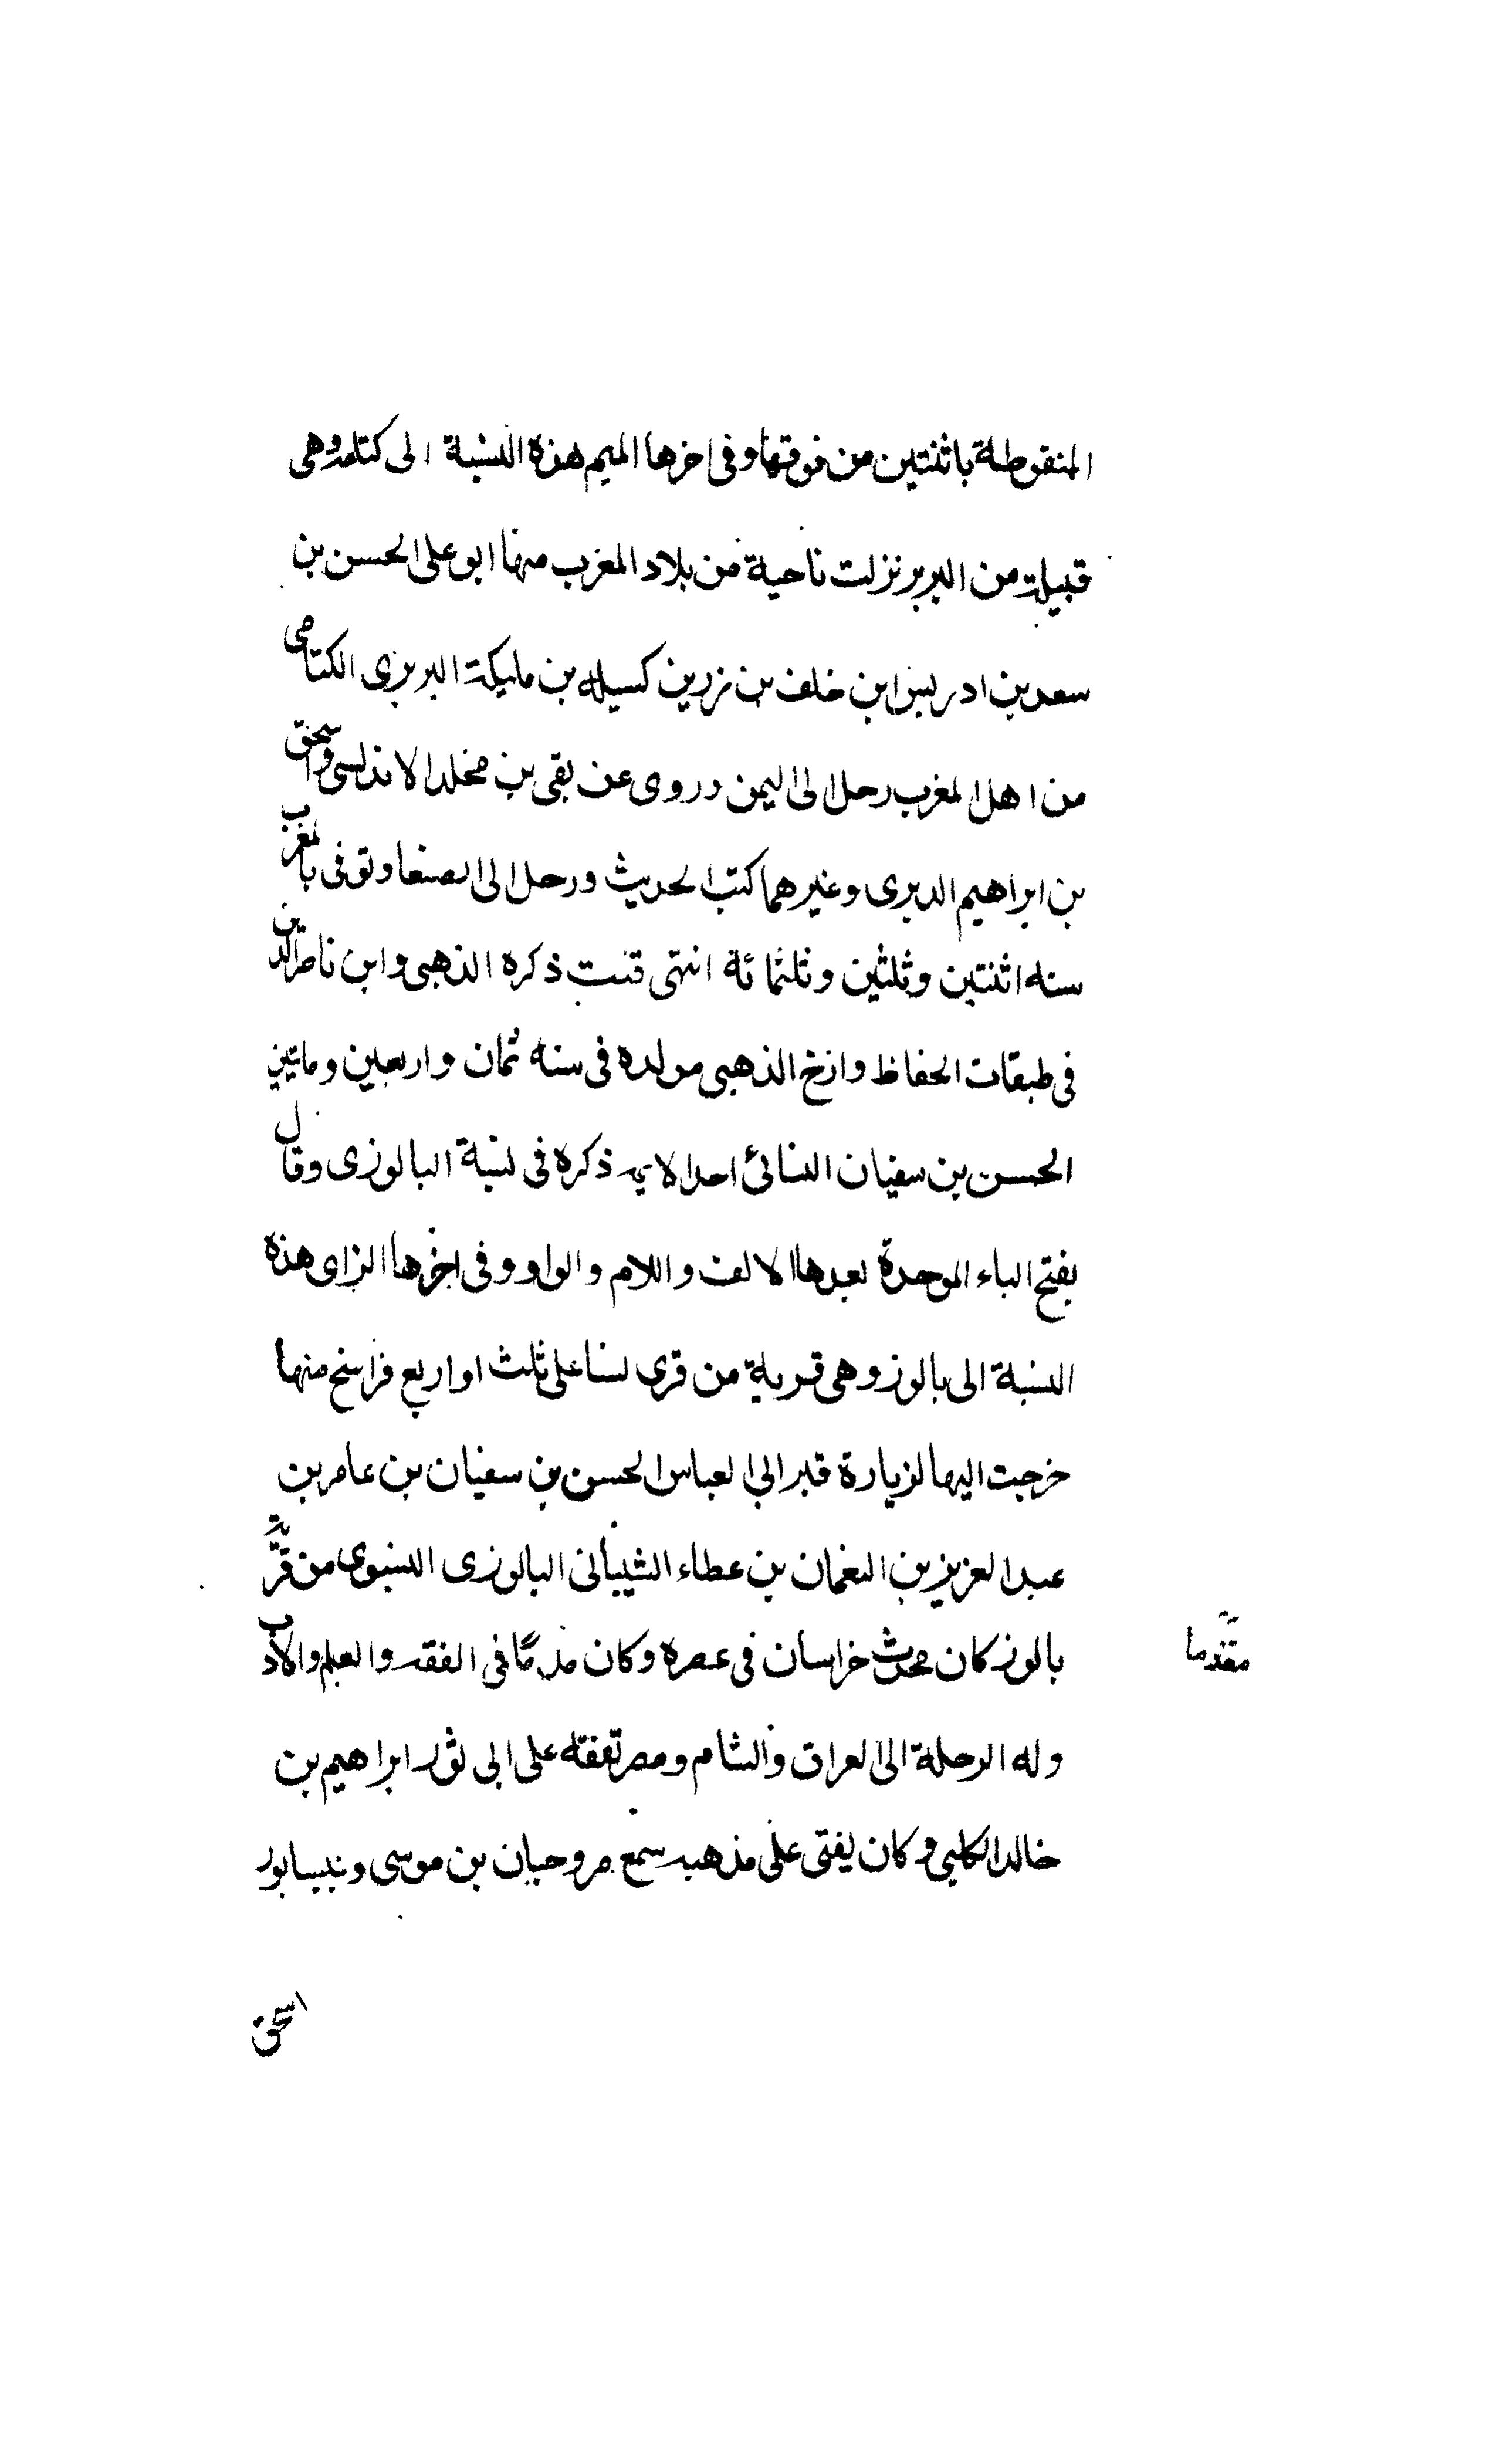 المنقوطة باثنتين من فوقها وفى اخرها الميم هذه النسبة الى كتامه وهى
قبيلة من البربر نزلت ناحية من بلاد المغرب منها ابو على الحسن بن
سعد بن ادريس ابن خلف بن زرين كسيله بن مليكة البربرى الكتامى
من اهل المغرب رحل الى اليمن وروى عن بقى بن مخلد الاندلسى واسحق
بن ابراهيم الدبرى وغيرهما كتب الحديث ورحل الى الصنعا وتوفى بالمغرب
سنه اثنتين وثلثين وثلثمائة انتهى قلت ذكره الذهبى وابن ناصر الدين
فى طبقات الحفاظ وارخ الذهبى مولده فى سنه ثمان واربعين ومائتين
الحسن بن سفيان النسائى احد الايمه ذكره فى نسبة البالوزى وقال
بفتح الباء الموحدة بعدها الالف واللام والواو وفى اخرها الزاى هذه
النسبة الى بالوز وهى قرية من قرى نسا على ثلث او اربع فراسخ منها
خرجت اليها لزيارة قبر ابى العباس الحسن بن سفيان بن عامر بن
عبد العزيز بن النعمان بن عطاء الشيبانى البالوزى النسوى من قرية
بالوز كان محدث خراسان فى عصره وكان مقدمًا فى الفقه والعلم والادب
مقدما
وله الرحلة الى العراق والشام ومصر تفقه على ابى ثور ابراهيم بن
خالد الكلبى وكان يفتى على مذهبه سمع بمرو حبان بن موسى ونيسابور
اسحق